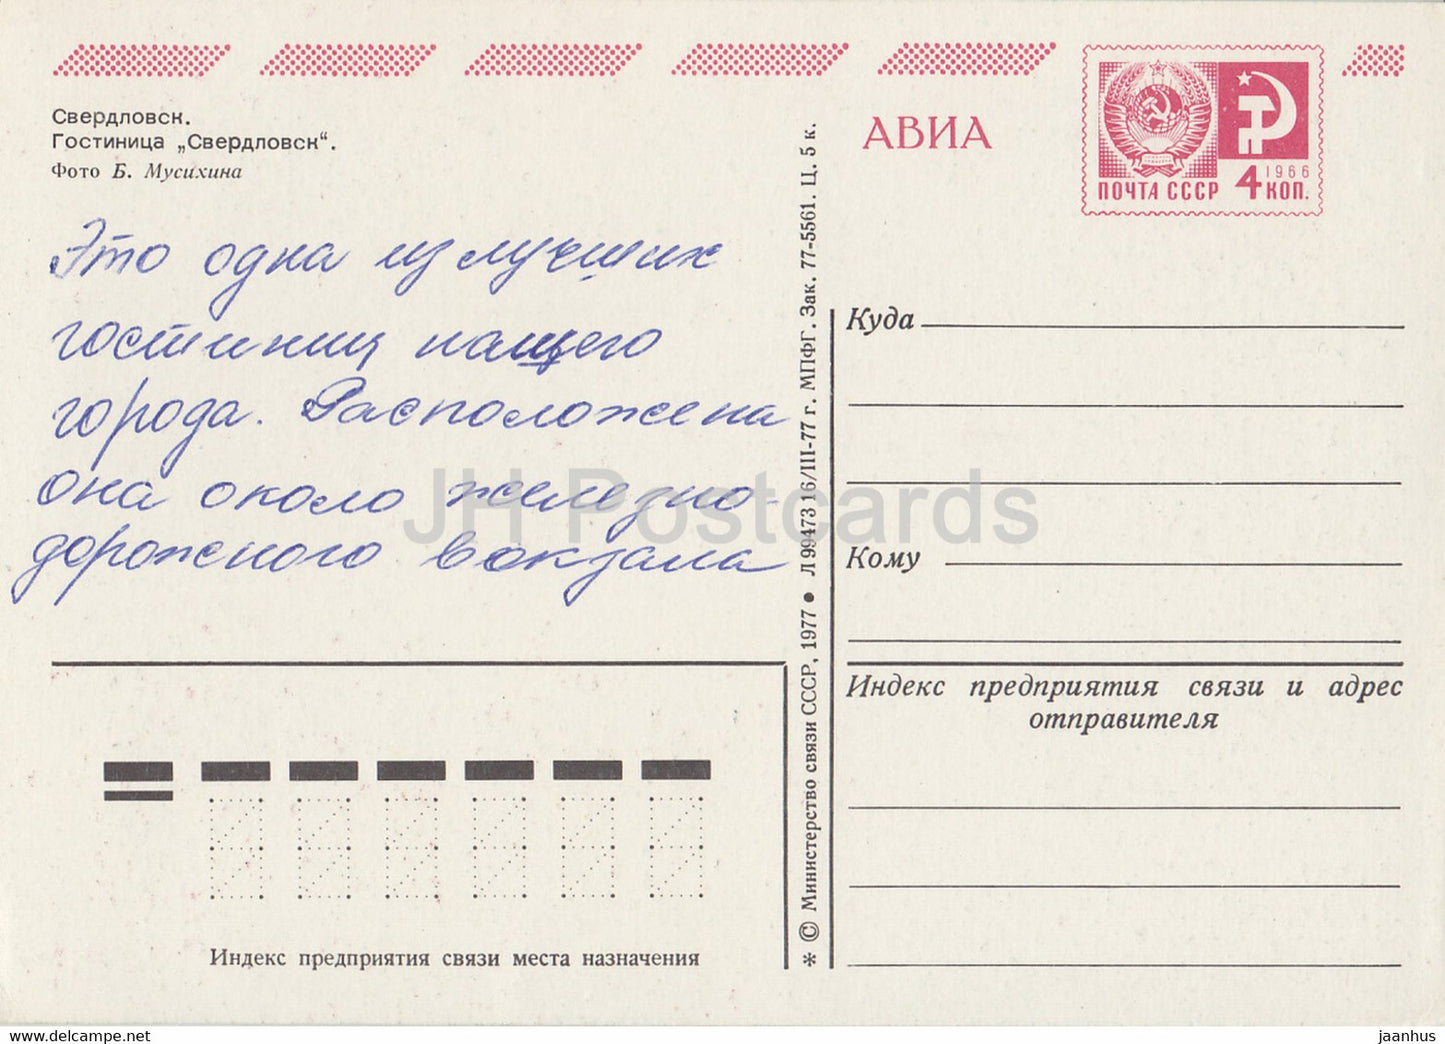 Свердловск.
Гостиница „Свердловск“.
Фото Б. Мусихина
Это одна из лучших
гостиниц нашего
города. Расположена
она около железно-
дорожного вокзала
Индекс предприятия связи места назначения
* © Министерство связи СССР, 1977 ● Л 99473 16/III-77 г. МПФГ. Зак. 77-5561. Ц. 5 к.
АВИА
ПОЧТА СССР 4 КОП.
1966
Куда
Кому
Индекс предприятия связи и адрес
отправителя
JH Postcards
www.delcampe.net
jaanhus